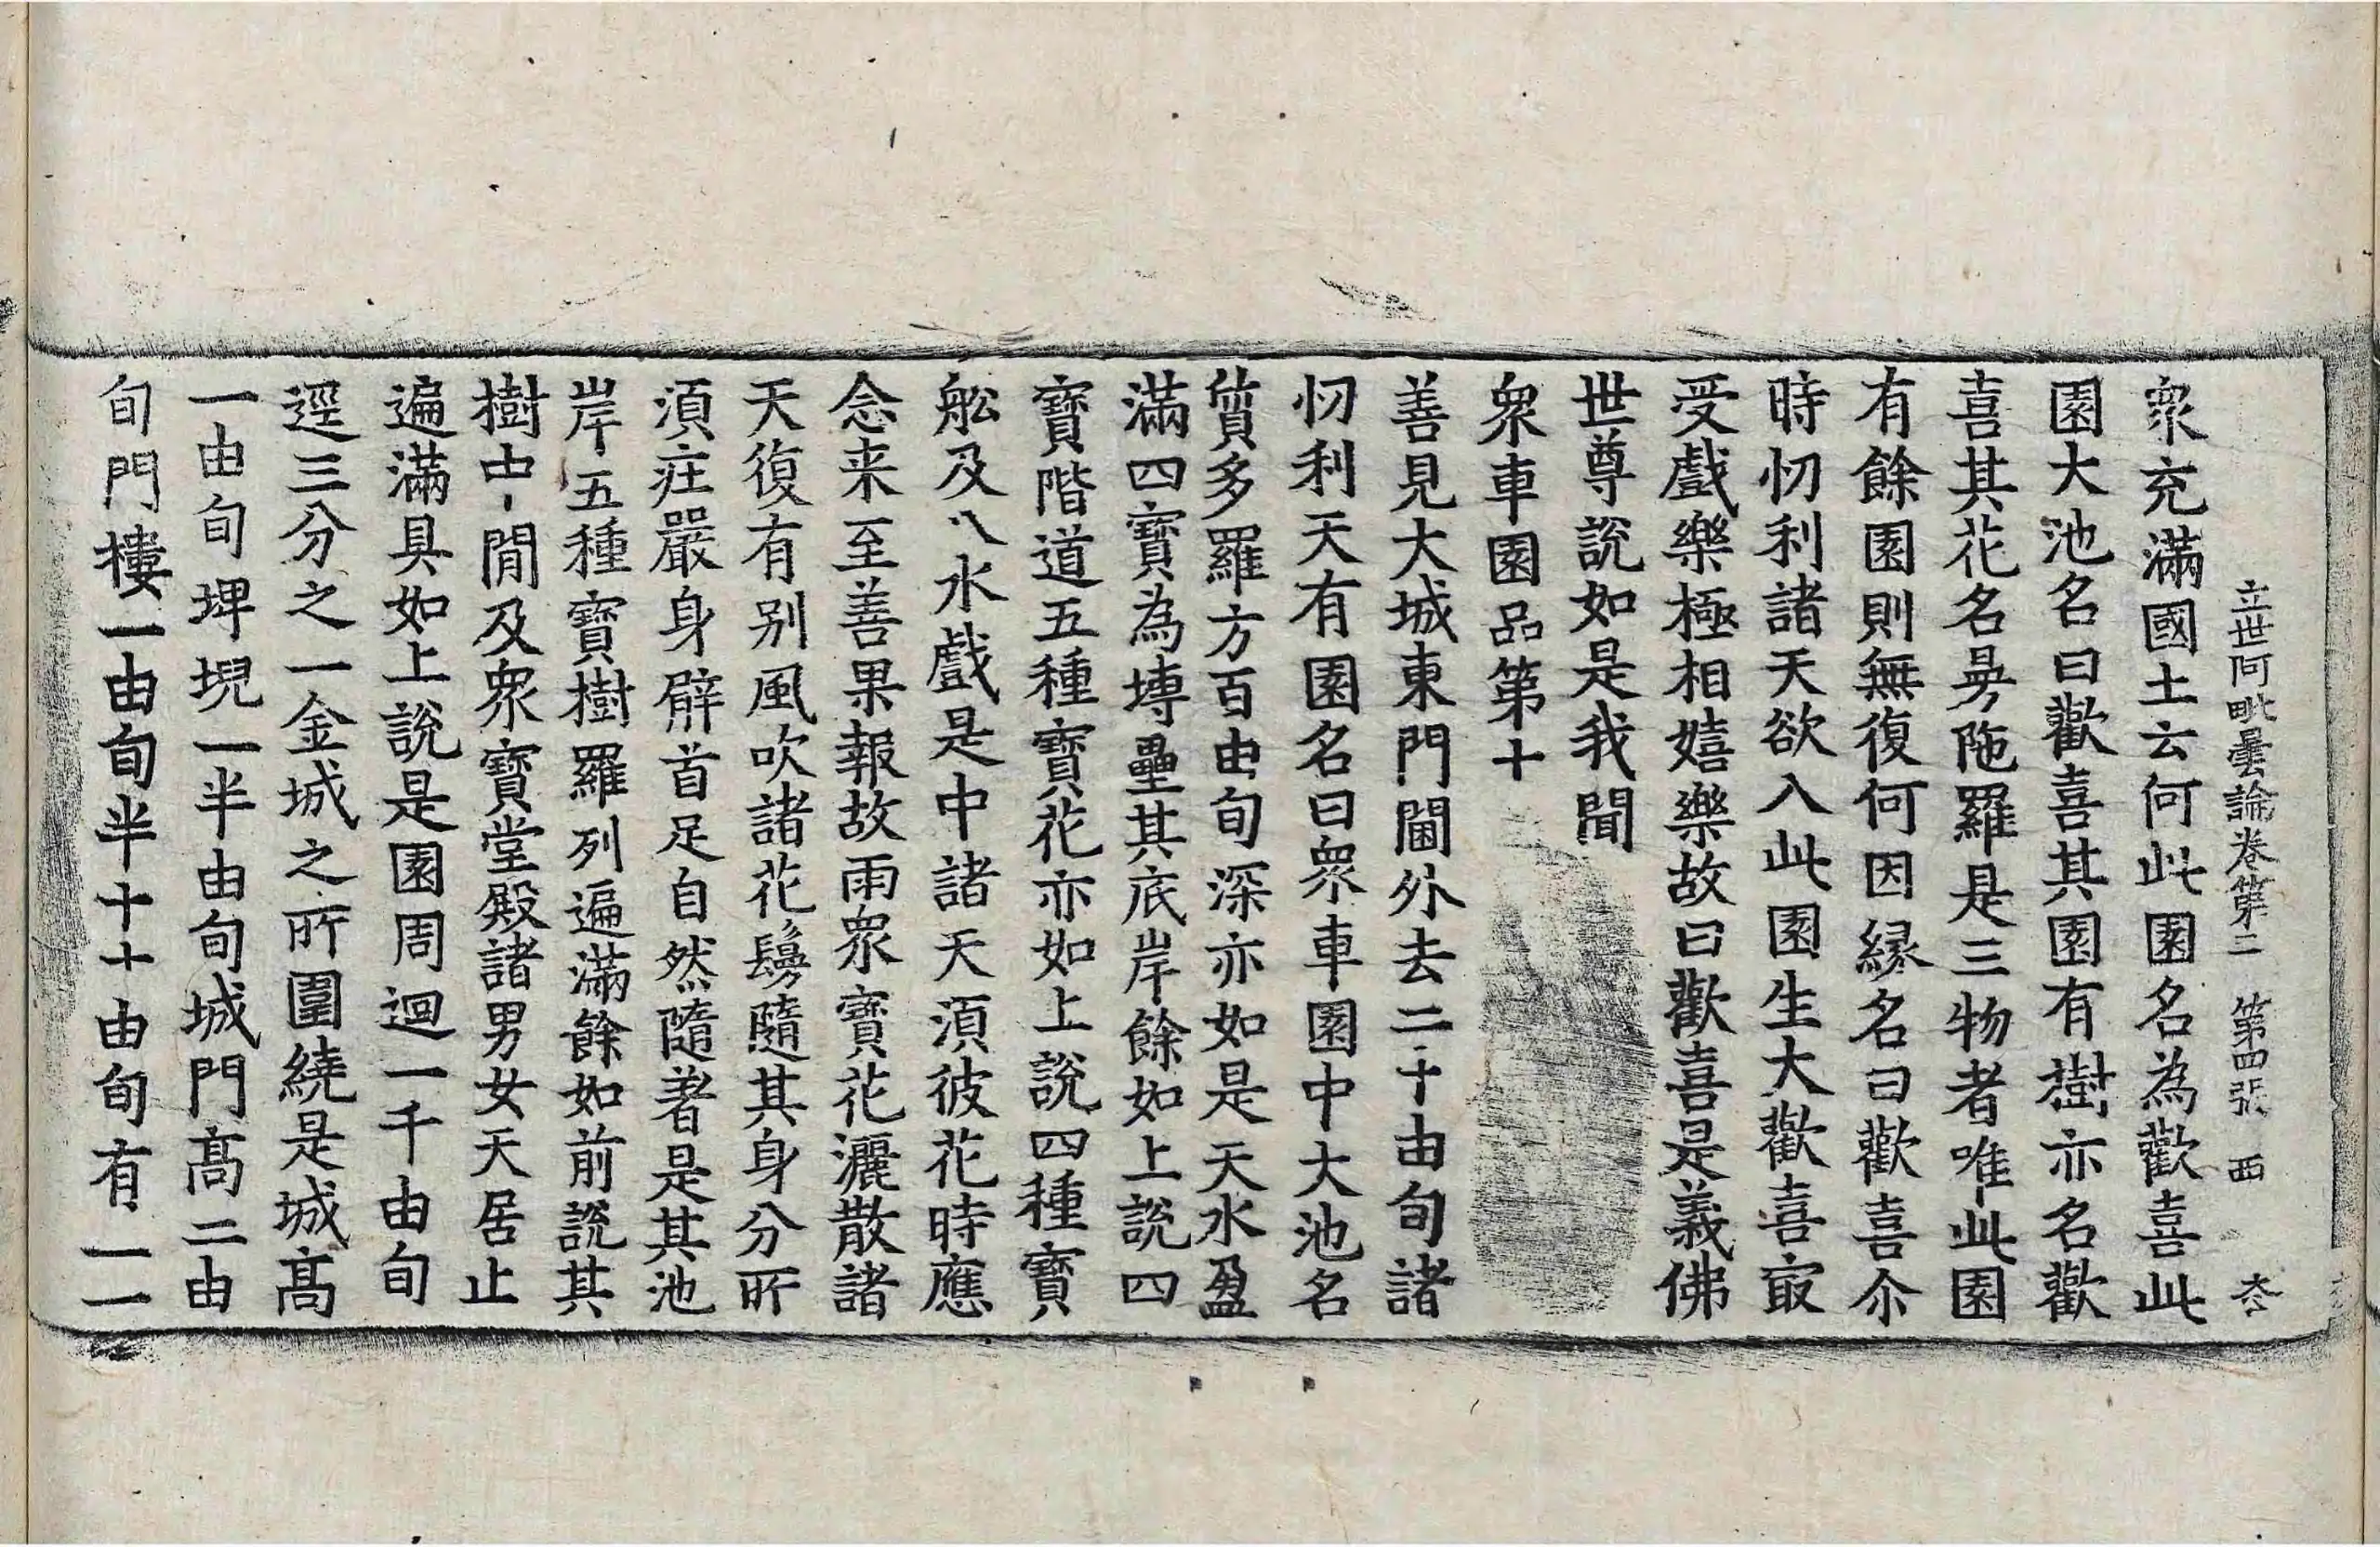 立世阿毗曇論卷第二　第四張　西
衆充滿國土云何此園名為歡喜此
園大池名曰歡喜其園有樹亦名歡
喜其花名曼陁羅是三物者唯此園
有餘園則無復何因縁名曰歡喜尒
時忉利諸天欲入此園生大歡喜㝡
受戲樂極相嬉樂故曰歡喜是義佛
世尊說如是我聞
衆車園品第十
善見大城東門閫外去二十由旬諸
忉利天有園名曰衆車園中大池名
質多羅方百由旬深亦如是天水盈
滿四寶為塼壘其底岸餘如上說四
寶階道五種寶花亦如上說四種寶
舩及八水戲是中諸天湏彼花時應
念来至善果報故雨衆寶花灑散諸
天復有別風吹諸花鬘隨其身分所
湏莊嚴身臂首足自然隨著是其池
岸五種寶樹羅列遍滿餘如前說其
樹中間及衆寶堂殿諸男女天居止
遍滿具如上說是園周迴一千由旬
逕三分之一金城之所圍繞是城髙
一由旬埤堄一半由旬城門髙二由
旬門樓一由旬半十十由旬有一一